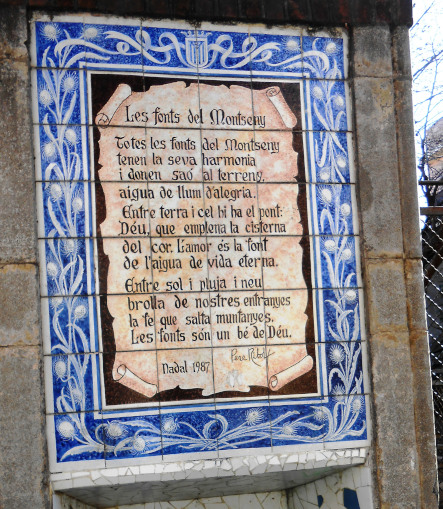 Les fonts del Montseny
Totes les fonts del Montseny
tenen la seva harmonia
i donen saó al terreny,
aigua de llum d'alegria.
Entre terra i cel hi ha el pont:
Déu, que emplena la cisterna
del cor. L'amor és la font
de l'aigua de vida eterna.
Entre sol i pluja i neu
brolla de nostres entranyes
la fe que salta muntanyes.
Les fonts són un bé de Déu.
Nadal 1987
Pere Ribot